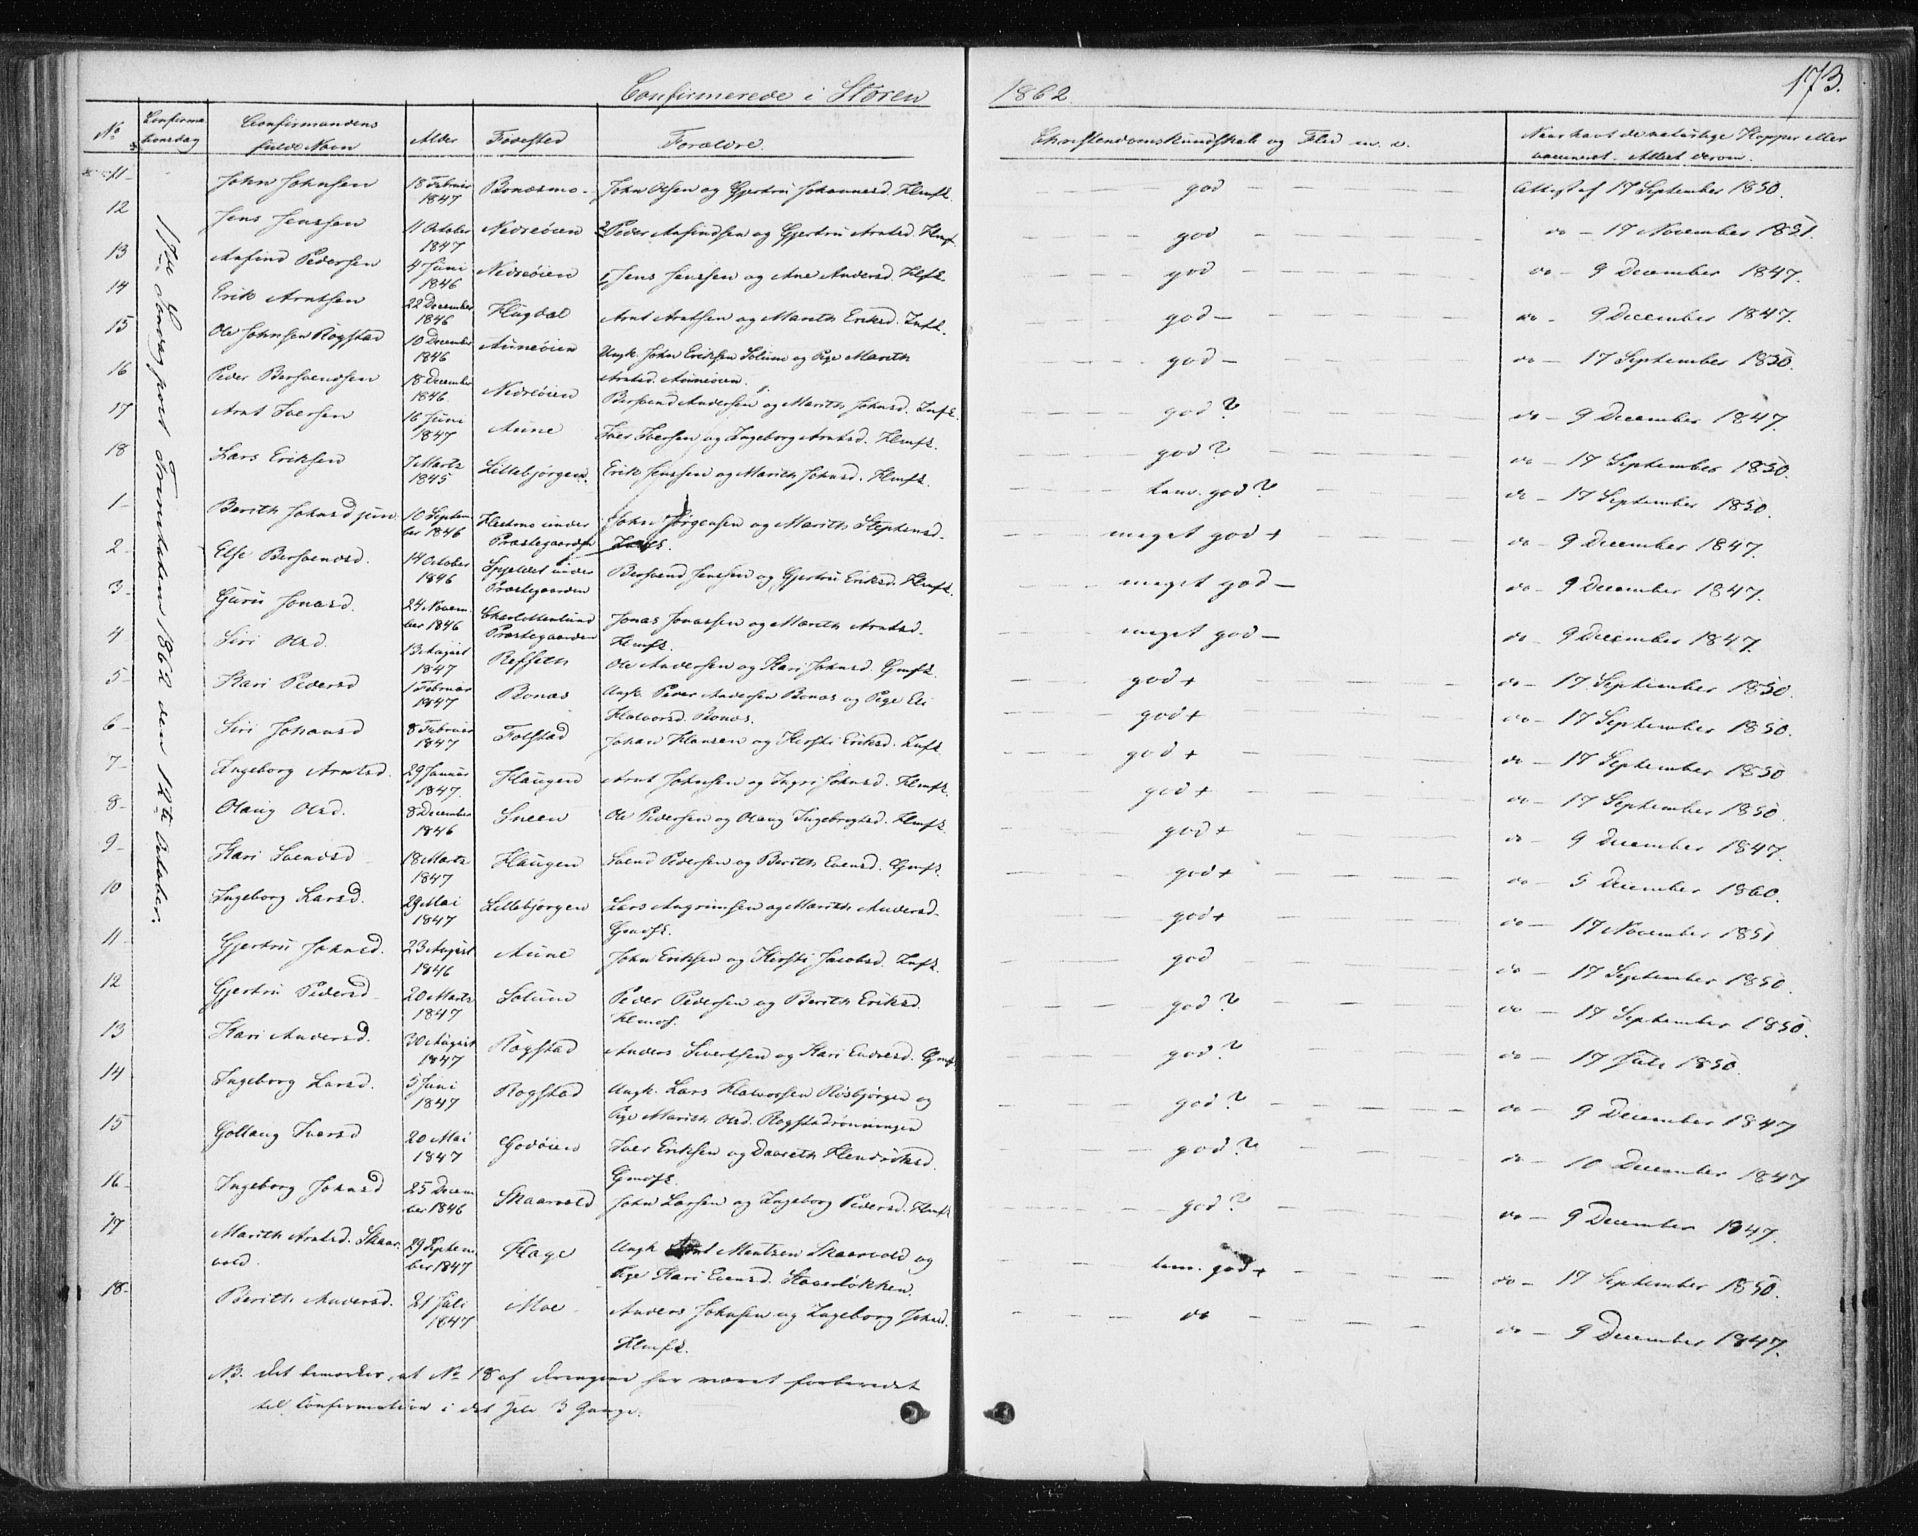 Confirmerede i Støren 1862. 173.
No Confirmationsdag Confirmandens fulde Navn Alder Fødested Forældre. Christendomskundskab og Flid m. v. Naar havt de naturlige Kopper eller vaccineret. Attest derom.
17de Søndag post Trinitatem 1862 den 12te October.
11 John Johnsen 18 Februar 1847 Bonæsmo John Olsen og Gjertru Johannesd. Hmfk. god Attest af 17 September 1850.
12 Jens Jenssen 11 October 1847 Nedreøien 2 Peder Anfindsen og Gjertru Arntsd. Hmf. god do - 17 November 1851.
13 Anfind Pedersen 4 Juni 1846 Nedreøien 1 Jens Jenssen og Ane Andersd. Hmfk. god do - 9 December 1847.
14 Erik Arntsen 22 December 1846 Hugdal Arnt Arntsen og Marith Eriksd. Infk. god - do - 9 December 1847.
15 Ole Johnsen Rogstad 10 December 1846 Auneøien Ungk. John Eriksen Solum og Pige Marith
Arntsd. Auneøien. god - do - 17 September 1850.
16 Peder Bersvendsen 18 December 1846 Nedreøien Bersvend Andersen og Marith Johnsd. Infk. god? do - 9 December 1847.
17 Arnt Iversen 16 Juni 1847 Aune Iver Iversen og Ingeborg Arntsd. Hmfk. god? do - 17 September 1850.
18 Lars Eriksen 7 Marts 1845 Lillebjørgen Erik Jenssen og Marith Johnsd. Hmfk. tem. god? do - 17 September 1850.
1 Berith Johnsd jun. 10 September 1846 Hestmo under Præstegaarden John Jørgensen og Marith Stephensd.
Infk. meget god + do - 9 December 1847.
2 Else Bersvendsd. 14 October 1846 Spjeldet under Præstegaarden Bersvend Jenssen og Gjertru Eriksd. Hmfk. meget god - do - 9 December 1847.
3 Guru Jonasd. 24 November 1846 Charlottenlund Præstegaarden Jonas Jonassen og Marith Arntsd.
Hmfk. meget god - do - 9 December 1847.
4 Siri Olsd. 13 August 1847 Refseth Ole Andersen og Kari Johnsd. Gmfk. god + do - 17 September 1850.
5 Kari Pedersd 1 Februar 1847 Bonæs Ungk. Peder Andersen Bonæs og Pige Eli
Halvorsd. Bonæs. god + do - 17 September 1850.
6 Siri Johansd 8 Februar 1847 Folstad Johan Hansen og Kirsti Eriksd. Infk. god + do - 17 September 1850
7 Ingeborg Arntsd. 29 Januar 1847. Haugen Arnt Johnsen og Ingri Johnsd. Hmfk. god + do - 17 September 1850.
8 Olaug Olsd. 8 December 1846 Sneen Ole Pedersen og Olaug Ingebrigtsd. Hmfk. god + do - 9 December 1847.
9 Kari Svendsd 18 Marts 1847 Haugen Svend Pedersen og Berith Evensd. Gmfk. god + do - 5 December 1860.
10 Ingeborg Larsd. 29 Mai 1847 Lillebjørgen Lars Angrimsen og Marith Andersd.
Gmdfk. god + do - 17 November 1851
11 Gjertru Johnsd. 23 August 1846 Aune John Eriksen og Kirsti Jacobsd. Infk. god do - 17 September 1850.
12 Gjertru Pedersd 20 Marts 1847 Solum Peder Pedersen og Berith Eriksd.
Hmdf. god? do - 17 September 1850.
13 Kari Andersd. 30 August 1847 Rogstad Anders Sivertsen og Kari Endresd. Gmfk. god? do - 17 Juli 1850.
14 Ingeborg Larsd. 5 Juni 1847 Rogstad Ungk. Lars Halvorsen Røsbjørgen og
Pige Marith Olsd. Rogstadrønningen god? do - 9 December 1847
15 Gollaug Iversd 20 Mai 1847 Godøien Iver Eriksen og Dorreth Hendriksd.
Gmdfk. god? do - 10 December 1847
16 Ingeborg Johnsd 25 December 1846 Skaarvold John Larsen og Ingeborg Pedersd. Hmfk. god? do - 9 December 1847.
17 Marith Arntsd. Skaarvold. 29 September 1847 Hage Ungk Arnt Mentzen Skaarvold og
Pige Kari Evensd. Stavertløkken. tem. god + do - 17 September 1850.
18 Berith Andersd. 21 Juli 1847 Moe Anders Johnsen og Ingeborg Johnsd.
Hmfk. do do - 9 December 1847.
NB. det bemærkes, at No 18 af drengene har været forberedt
til Confirmation i det hele 3 Gange.